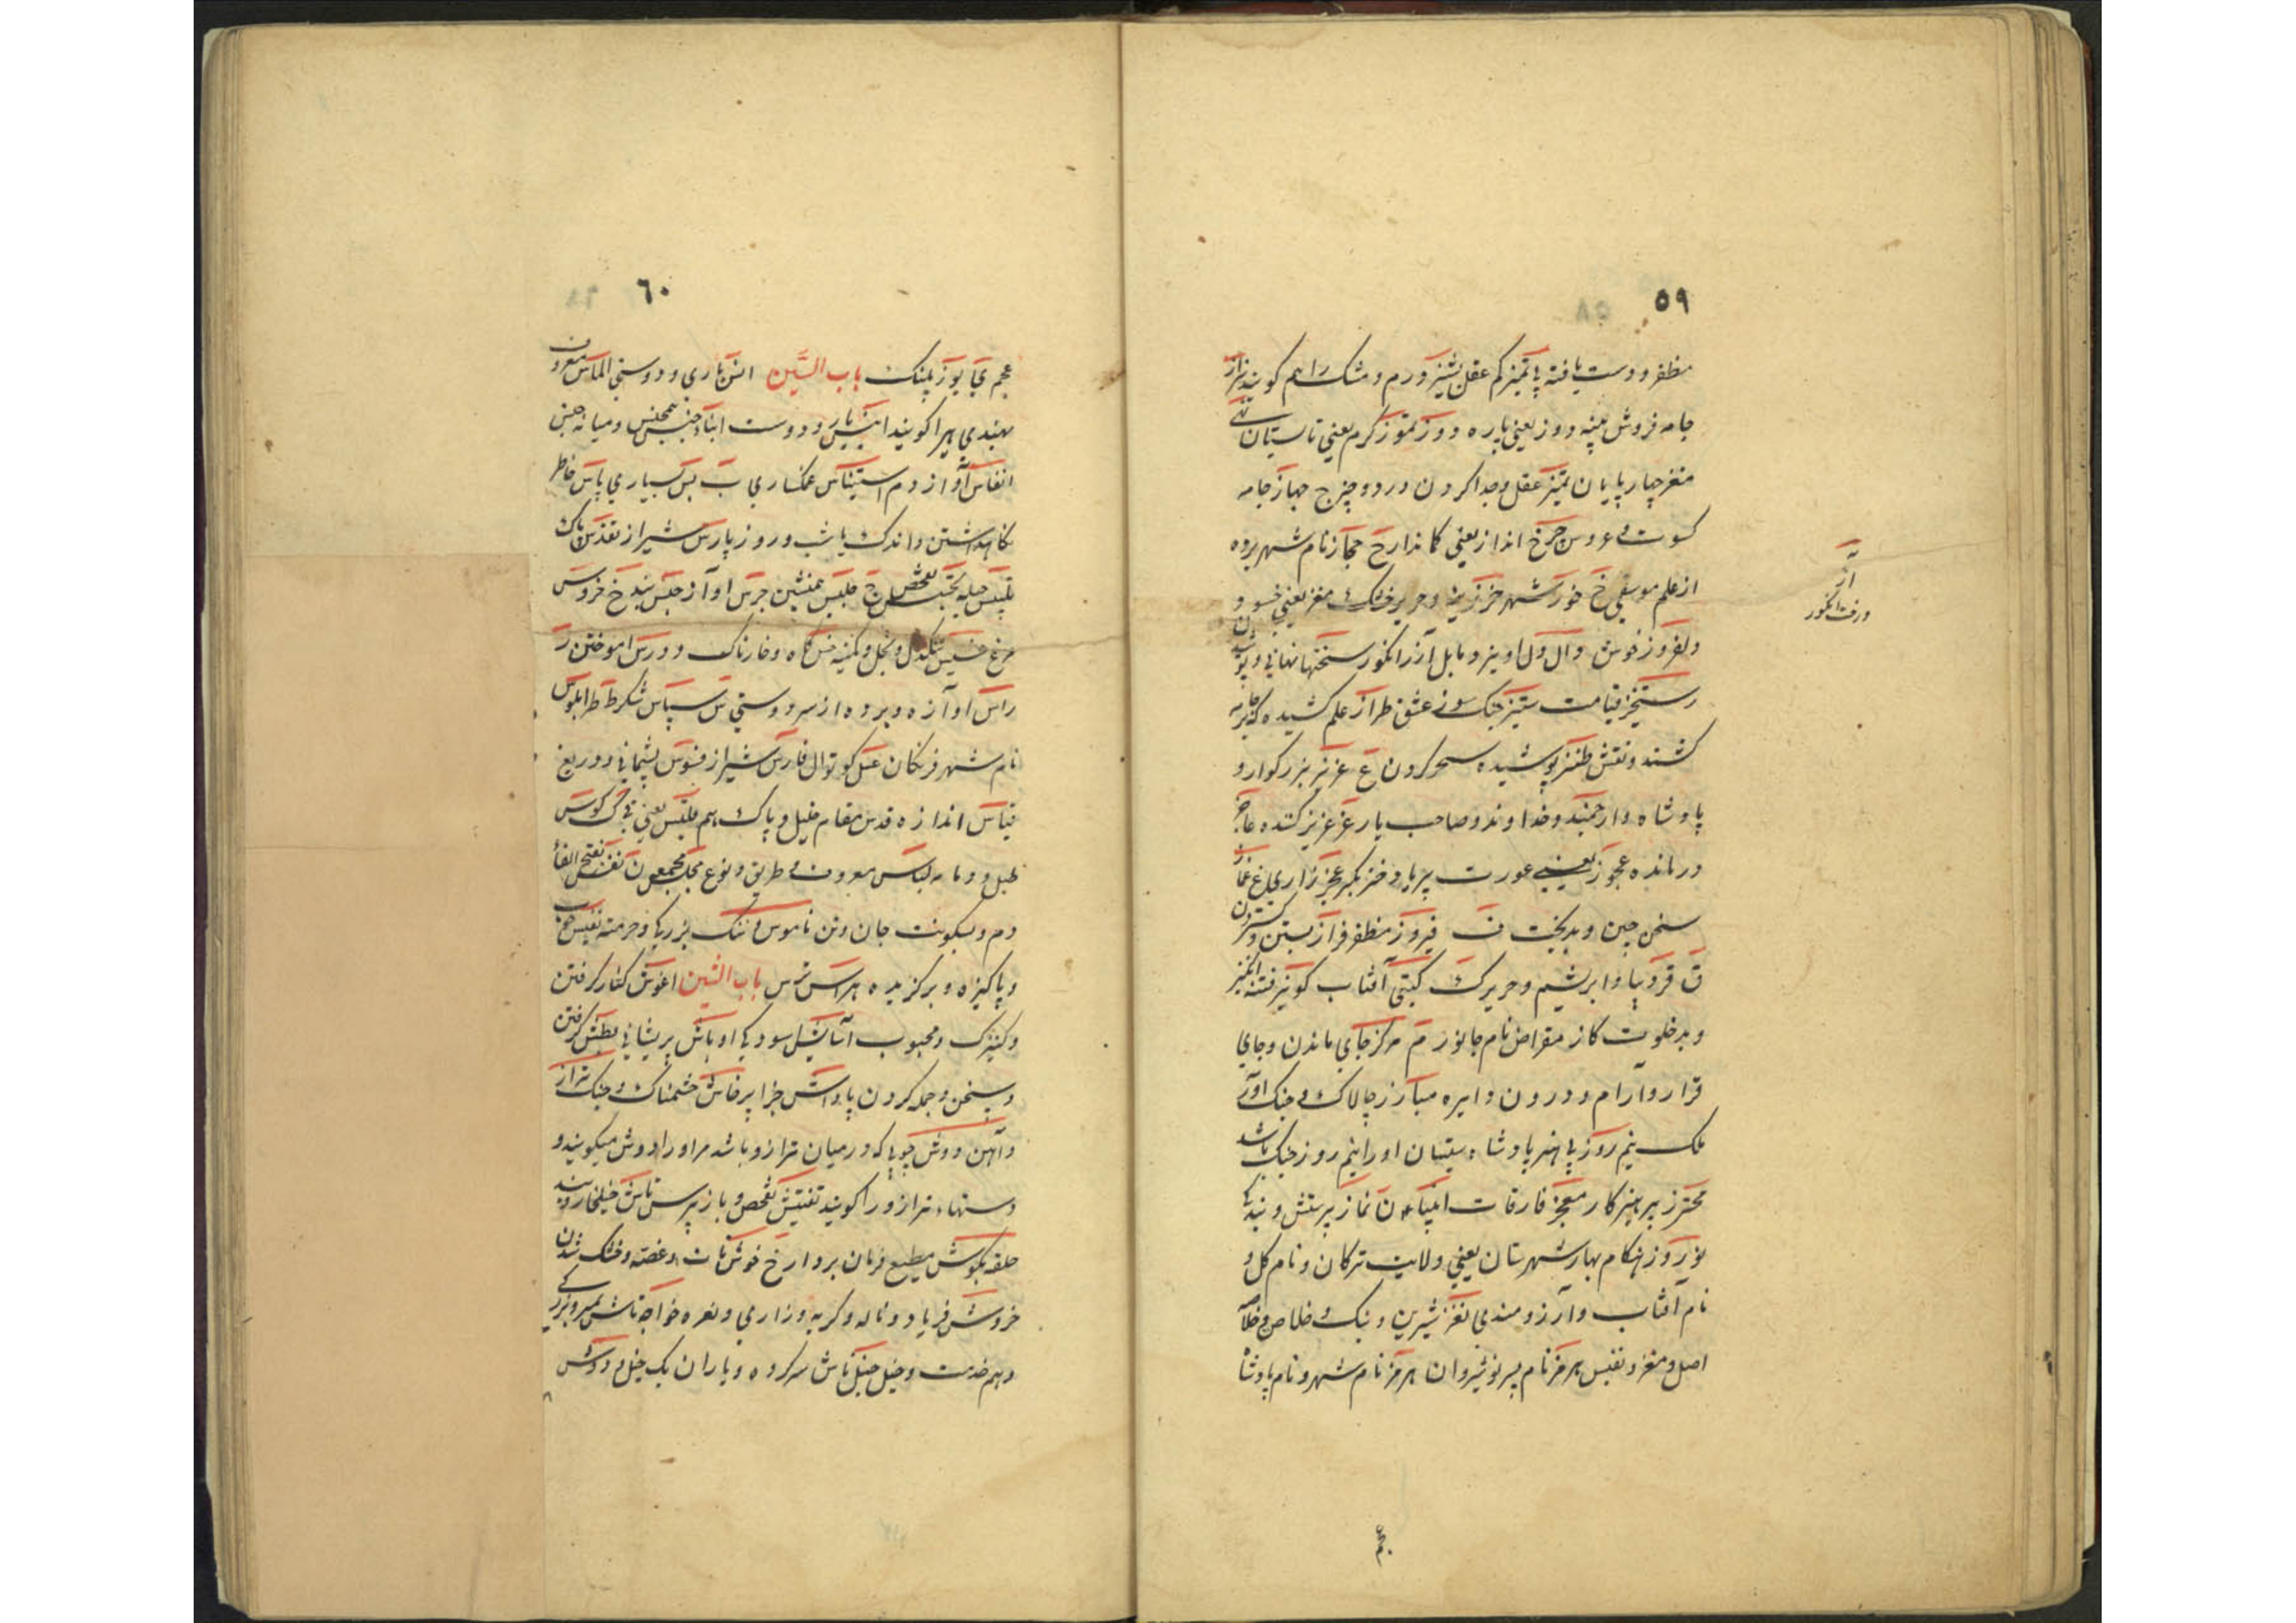 ٥٩
مظفر و دست یافته پا تمیز کم عقل بشیز و رم و مشک را هم کویند بزاز
جامه فروش پنبه دوز یعنی پاره دوز تموز کرم یعنی تابستان
مغز چهار پایان تمیز عقل و جدا کردن در دو چیز ج جهاز جامه
کسوت عروس چرخ انداز یعنی کماندار ح حجاز نام شهر پرده
از علم موسیقی خ خوز شهر خز و حریر خشک مغز یعنی
دلفروز خوش و آل دل اویز و مایل آز انکور سختها نهانی و
رستخیز قیامت ستیز جنک سوز عشق طراز علم کشیده که
کشند و نقش طنز پوشیده سحر کردن ع عزیز بزرکوار و
پادشاه و ارجمند و خدا وند و صاحب یار عزیز کننده عاجز
درمانده عجوز یعنی عورت پیر یا دختر بکر عجز زاری غ غماز
سخن چین و بدبخت ف فیروز مظفر فراز بستن و
ق قز دیبا و ابریشم و حریر ک کیتی آفتاب کونیز فتنه انکیز
و بد خلویت کاز مقراض نام جانور م مرکز جای ماندن و جای
قرار و آرام و درون دایره مبارز چالاک و جنک آور
ملک نیم روز پا هنر پادشاه سیستان او را نیم روز جنک باشد
محترز پرهیزکار معجز فارقات انبیاء ن نماز پرستش و بندکی
نوروز هنکام بهار شهرستان یعنی ولایت ترکان و نام کل و
نام آفتاب و آرزومندی نغز شیرین و نیک خلاص و خلاصه
اصل و مغز و نفیس هرمز نام پسر نوشیروان هرمز نام شهر و نام پادشاه
آز
درخت انکور
عجم
٦٠
عجم ی یوز پلنک باب السّین انس یاری و دوستی الماس معروف
بهندی هیرا کویند انیس یار و دوست ابناء جنس همجنس و میانه جنس
انفاس آواز دم استیناس غمکساری ب بس بسیاری پاس خاطر
نکاهداشتن و اندک یا شب و روز پارس شیراز تقدس پاک
تلبیس حیله تجسس تفحص ج جلیس همنشین جرس اواز حبس بند خ خروس
مرغ خسیس تنکدل و بخل و کمینه خس کاه و خار ناک د درس اموختن ر
راس او آزه و برده از سر دوستی س سپاس شکر ط طرابلوس
نام شهر فرنکان عسس کوتوال فارس شیراز فسوس پشیمانی و دریغ
قیاس اندازه قدس مقام خلیل و پاک هم ملتبس یعنی ک کوس
طبل و دمامه لباس معروف طریق و نوع مجلس مجمع ن نفس بفتح الفاء
دم و بسکونت جان و تن ناموس ننک بزرکی و حرمت نفیس خوب
و پاکیزه و برکزیده هراس ترس باب الشّین اغوش کنار کرفتن
و کنیزک و محبوب آسایش آسودکی اوباش پریشانی بطش کرفتن
و سخن و جمله کردن پاداش جزا پرخاش خشمناک و جنک تراز
و آهن دوش چوبی که در میان ترازو باشد مر او را دوش میکویند و
دستهاء ترازو را کویند تفتیش تفحص و باز پرس تاش خیلخار و
حلقه بکوش مطیع فرمان بردار خ خوش وغصه و خشک شدن
خروش فریاد و ناله و کریه و زاری و نعره خواجه تاش
و هم خدمت و خیل خیلتاش سرکروه و یاران یک خیل دوش